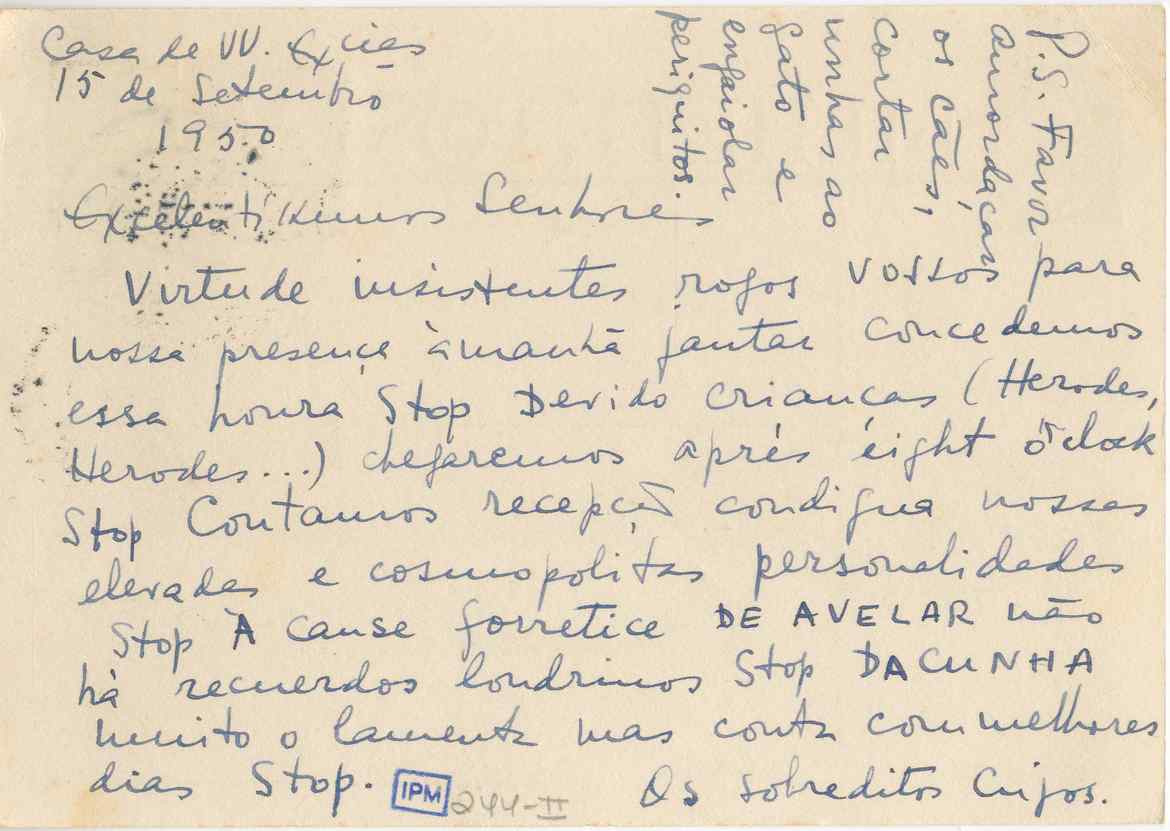 Casa de VV. Excias
15 de Setembro
1950
Excelentíssimos Senhores
Virtude insistentes rogos vossos para
nossa presença àmanhã jantar concedemos
essa honra Stop Devido crianças (Herodes,
Herodes...) chegaremos après eight o'clock
Stop Contamos recepção condigna nossas
elevadas e cosmopolitas personalidades
Stop À cause forretice DE AVELAR não
há recuerdos londrinos Stop DACUNHA
muito o lamenta mas conta com melhores
dias Stop.
Os sobreditos Cujos.
P.S. Favor
amordaçar
os cães,
cortar
unhas ao
gato e
engaiolar
periquitos.
IPM
244-II